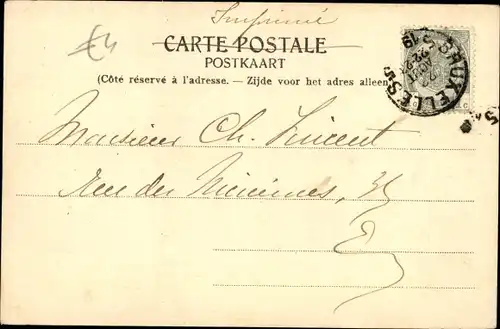 Imprimé
£4
CARTE POSTALE
POSTKAART
(Côté réservé à l'adresse. — Zijde voor het adres alleen
BRUXELLES 5
AOUT
Monsieur Ch. Vincent
Rue des Minimes, 35